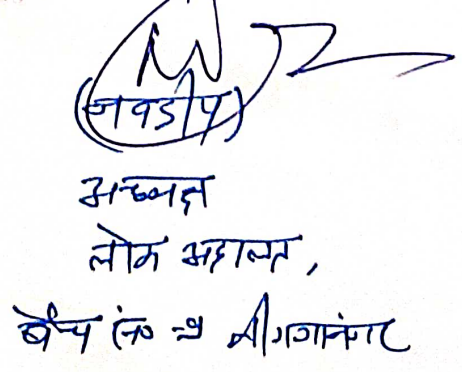 (जवडीप)
अध्यक्ष
लोक अदालत,
बैंच सं० श्रीगंगानगर